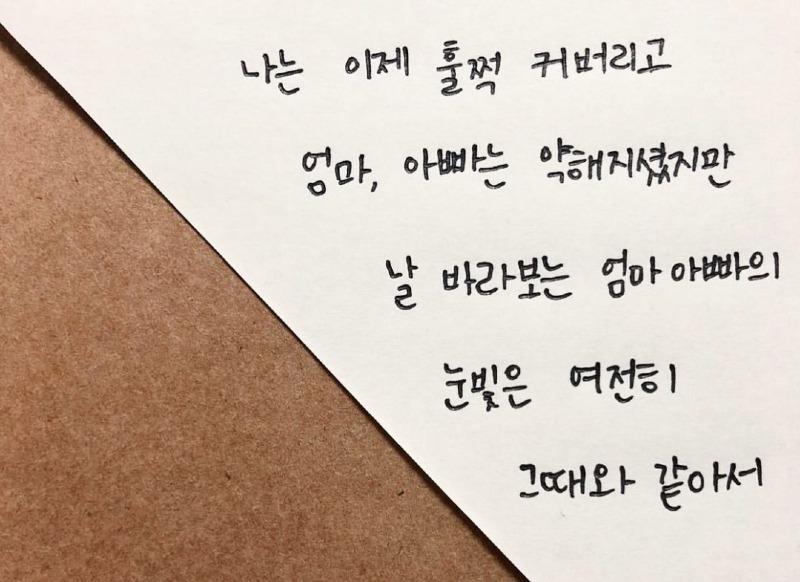 나는 이제 훌쩍 커버리고
엄마, 아빠는 약해지셨지만
날 바라보는 엄마 아빠의
눈빛은 여전히
그때와 같아서